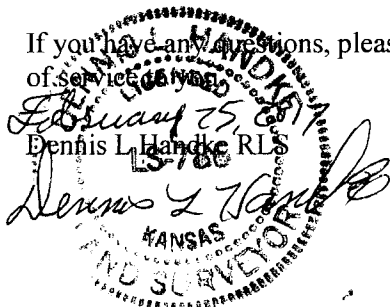 If you have any questions, pleas
of service to you.
February 25,
Dennis L Handke RLS
Dennis L Handke
DENNIS L. HANDKE
LICENSED
KANSAS
LAND SURVEYOR